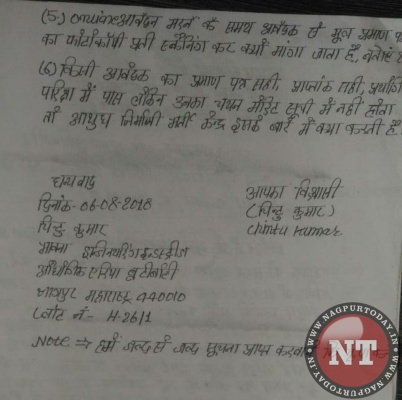 (5.) online आवेदन भरने के समय आवेदक से मूल प्रमाण
का फोटोकॉपी प्रति स्कैनिंग कर क्यों मांगा जाता है,
(6) किसी आवेदक का प्रमाण पत्र सही, प्राप्तांक सही,
परिक्षा में पास लेकिन उनका चयन मेरिट सूची में नहीं होता
तो आयुध निर्माणी भर्ती केन्द्र इसके बारे में क्या करती है
धन्यवाद
आपका विश्वासी
दिनांक- 06-08-2018
(चिन्टु कुमार)
चिन्टु कुमार
Chintu Kumar
इन्जिनयरिंग इन्डस्ट्रीज
औद्योगिक एरिया बुटीबोरी
नागपुर महाराष्ट्र 440010
प्लोट नं- H-26/1
NOTE ⇒ हमें जल्द से जल्द सूचना प्राप्त करवाने
NT
WWW.NAGPURTODAY.IN
WWW.NAGPURTODAY.IN